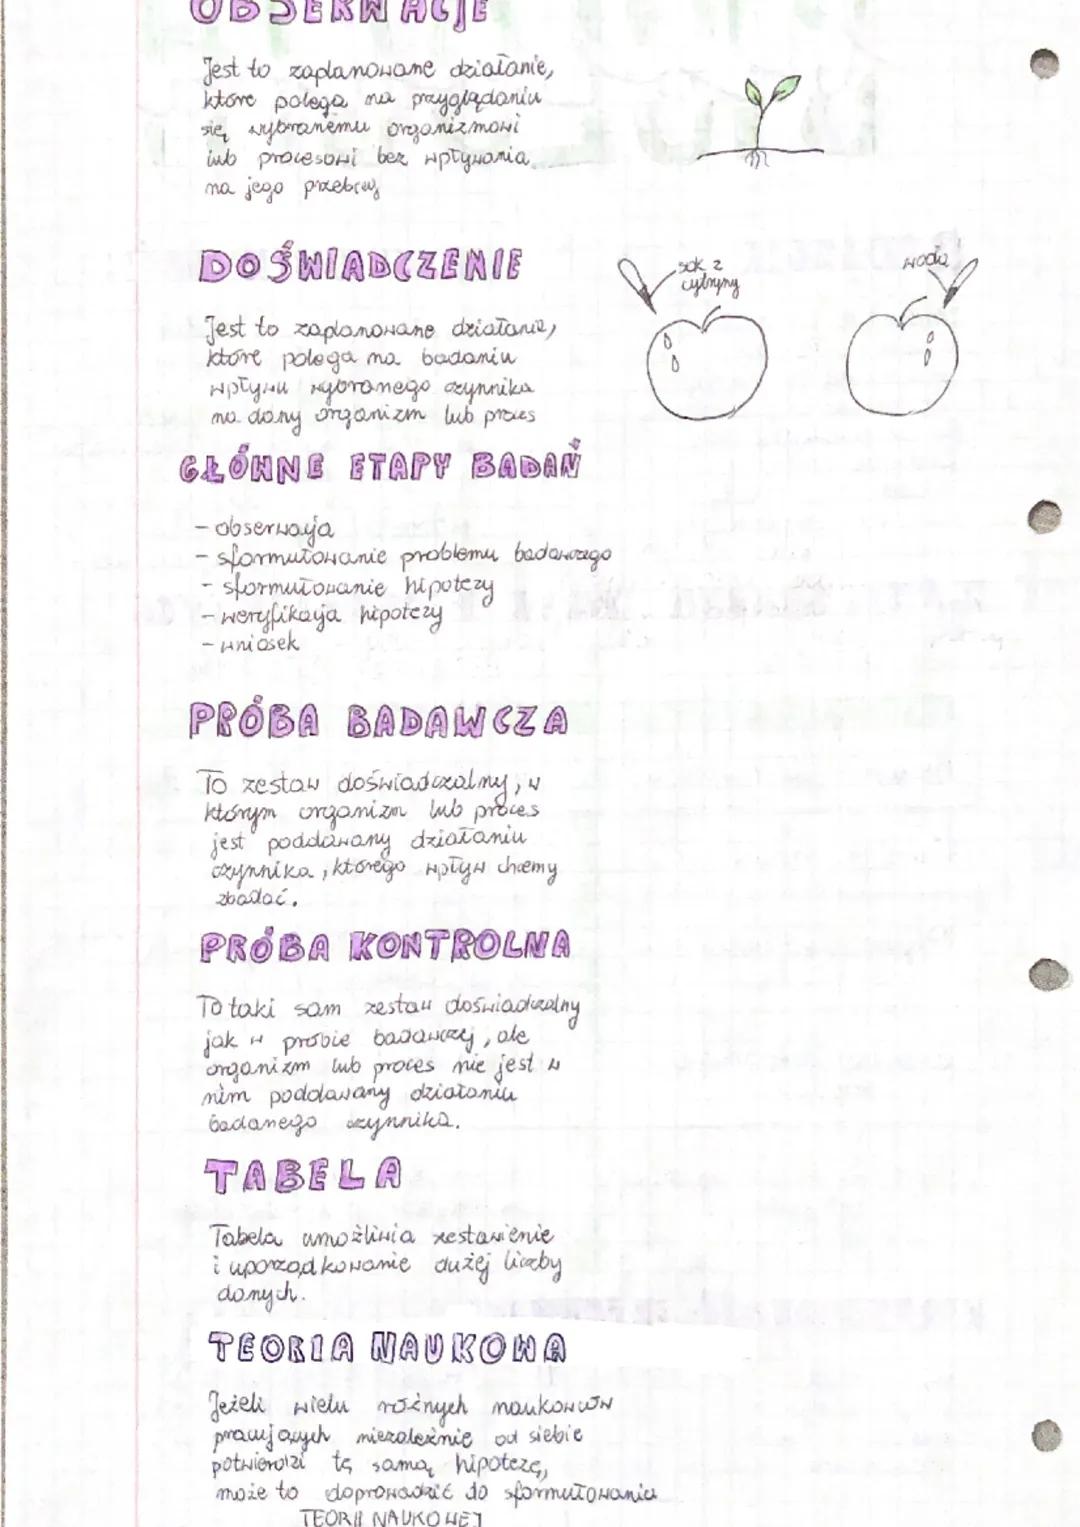 OBSERWACJE
Jest to zaplanowane działanie,
które polega na przyglądaniu
się wybranemu organizmowi
lub procesowi bez wpływania
na jego przebieg
DOŚWIADCZENIE
sok z
cytryny
woda
Jest to zaplanowane działanie,
które polega na badaniu
wpływu wybranego czynnika
na dany organizm lub proces
GŁÓWNE ETAPY BADAŃ
- obserwacja
- sformułowanie problemu badawczego
- sformułowanie hipotezy
- weryfikacja hipotezy
- wniosek
PRÓBA BADAWCZA
To zestaw doświadczalny, w
którym organizm lub proces
jest poddawany działaniu
czynnika, którego wpływ chcemy
zbadać.
PRÓBA KONTROLNA
To taki sam zestaw doświadczalny
jak w próbie badawczej, ale
organizm lub proces nie jest w
nim poddawany działaniu
badanego czynnika.
TABELA
Tabela umożliwia zestawienie
i uporządkowanie dużej liczby
danych.
TEORIA NAUKOWA
Jeżeli wielu różnych naukowców
pracujących niezależnie od siebie
potwierdzi tę samą hipotezę,
może to doprowadzić do sformułowania
TEORII NAUKOWEJ